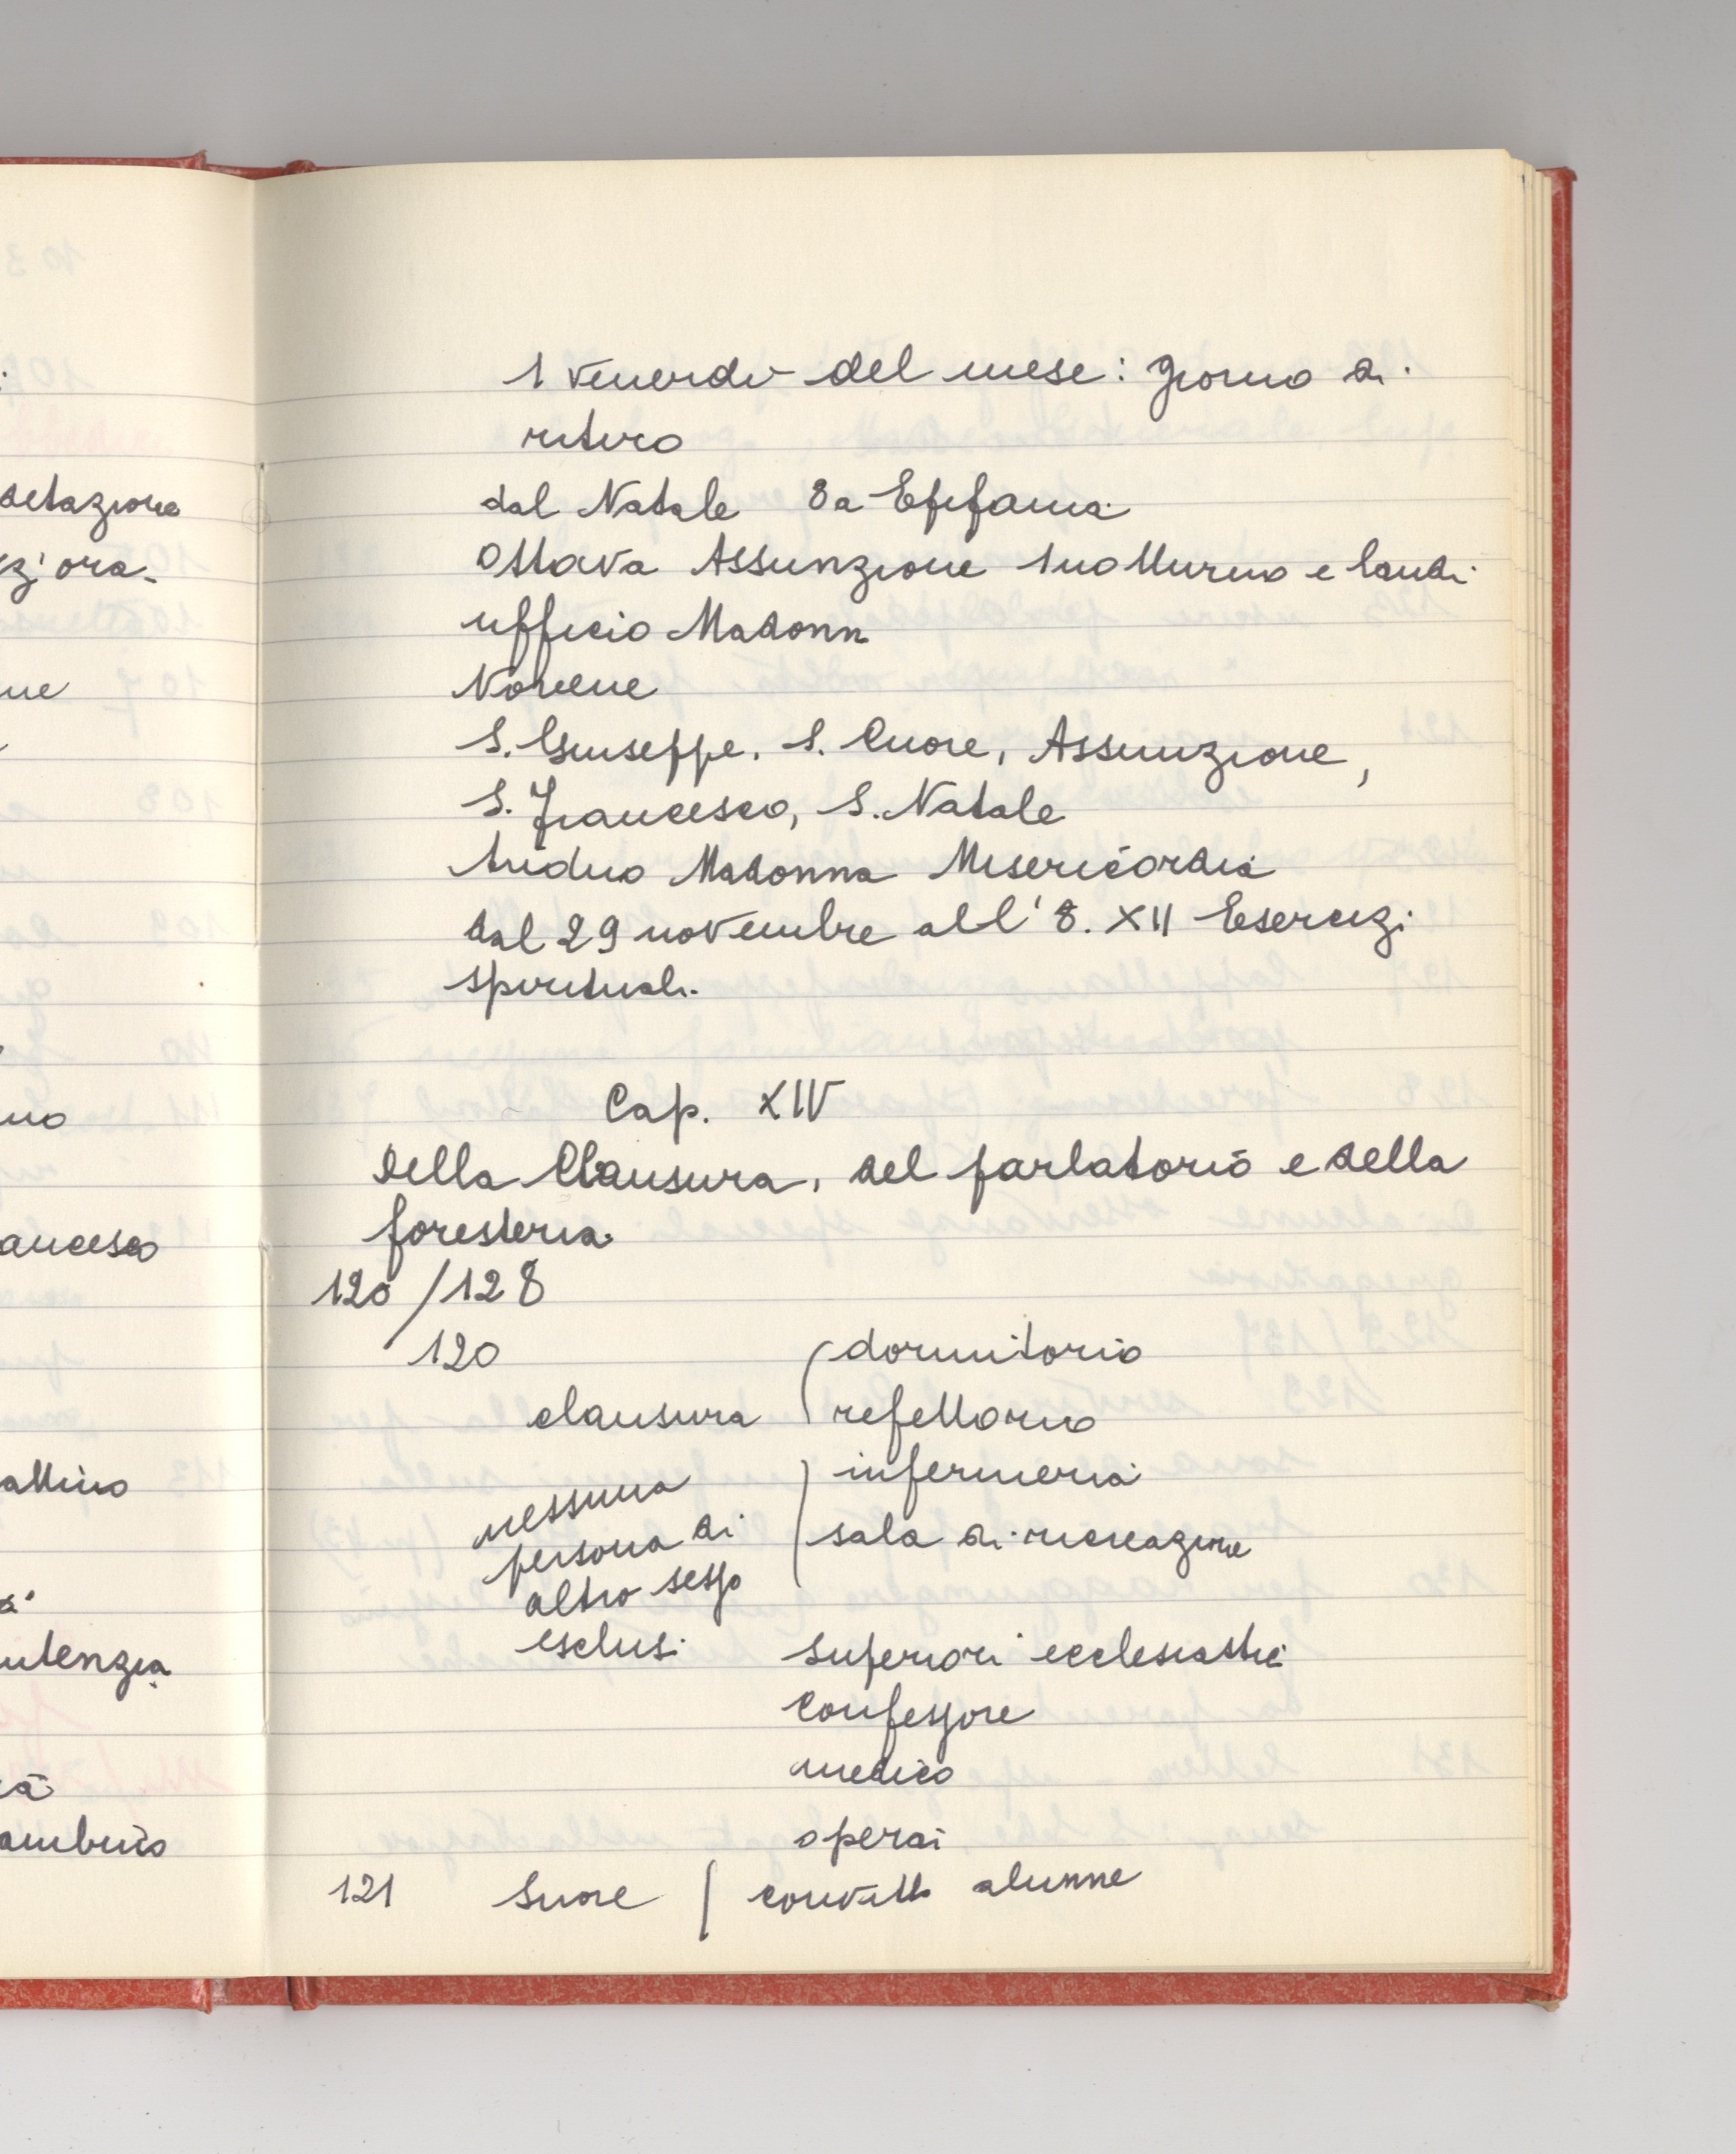 detazione
z'ora-
ancesco
attino
utenzia
ambrio
1 venerdì del mese: giorno di
ritiro
dal Natale 8a Epifania
Ottava Assunzione 1 notturno e laudi
ufficio Madonn
Novene
S. Giuseppe. S. Cuore, Assunzione,
S. Francesco, S. Natale
triduo Madonna Misericordia
dal 29 novembre all'8. XII Esercizi
spirituali.
Cap. XIV
Della Clausura, del parlatorio e della
foresteria
120/128
120 dormitorio
clausura refettorio
infermeria
nessuna
persona di sala di ricreazione
altro sesso
esclusi superiori ecclesiastici
confessore
medico
operai
121 Suore / convitto alunne